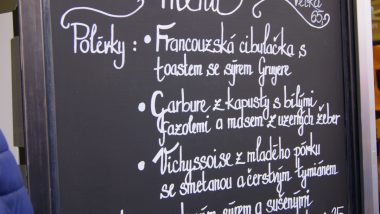 menu
velká
65
Polévky : • Francouzská cibulačka s
toastem se sýrem Gruyere
• Garbure z kapusty s bílými
fazolemi a masem z uzených žeber
• Vichyssoise z mladého pórku
se smetanou a čerstvým tymiánem
sýrem a sušenými
35